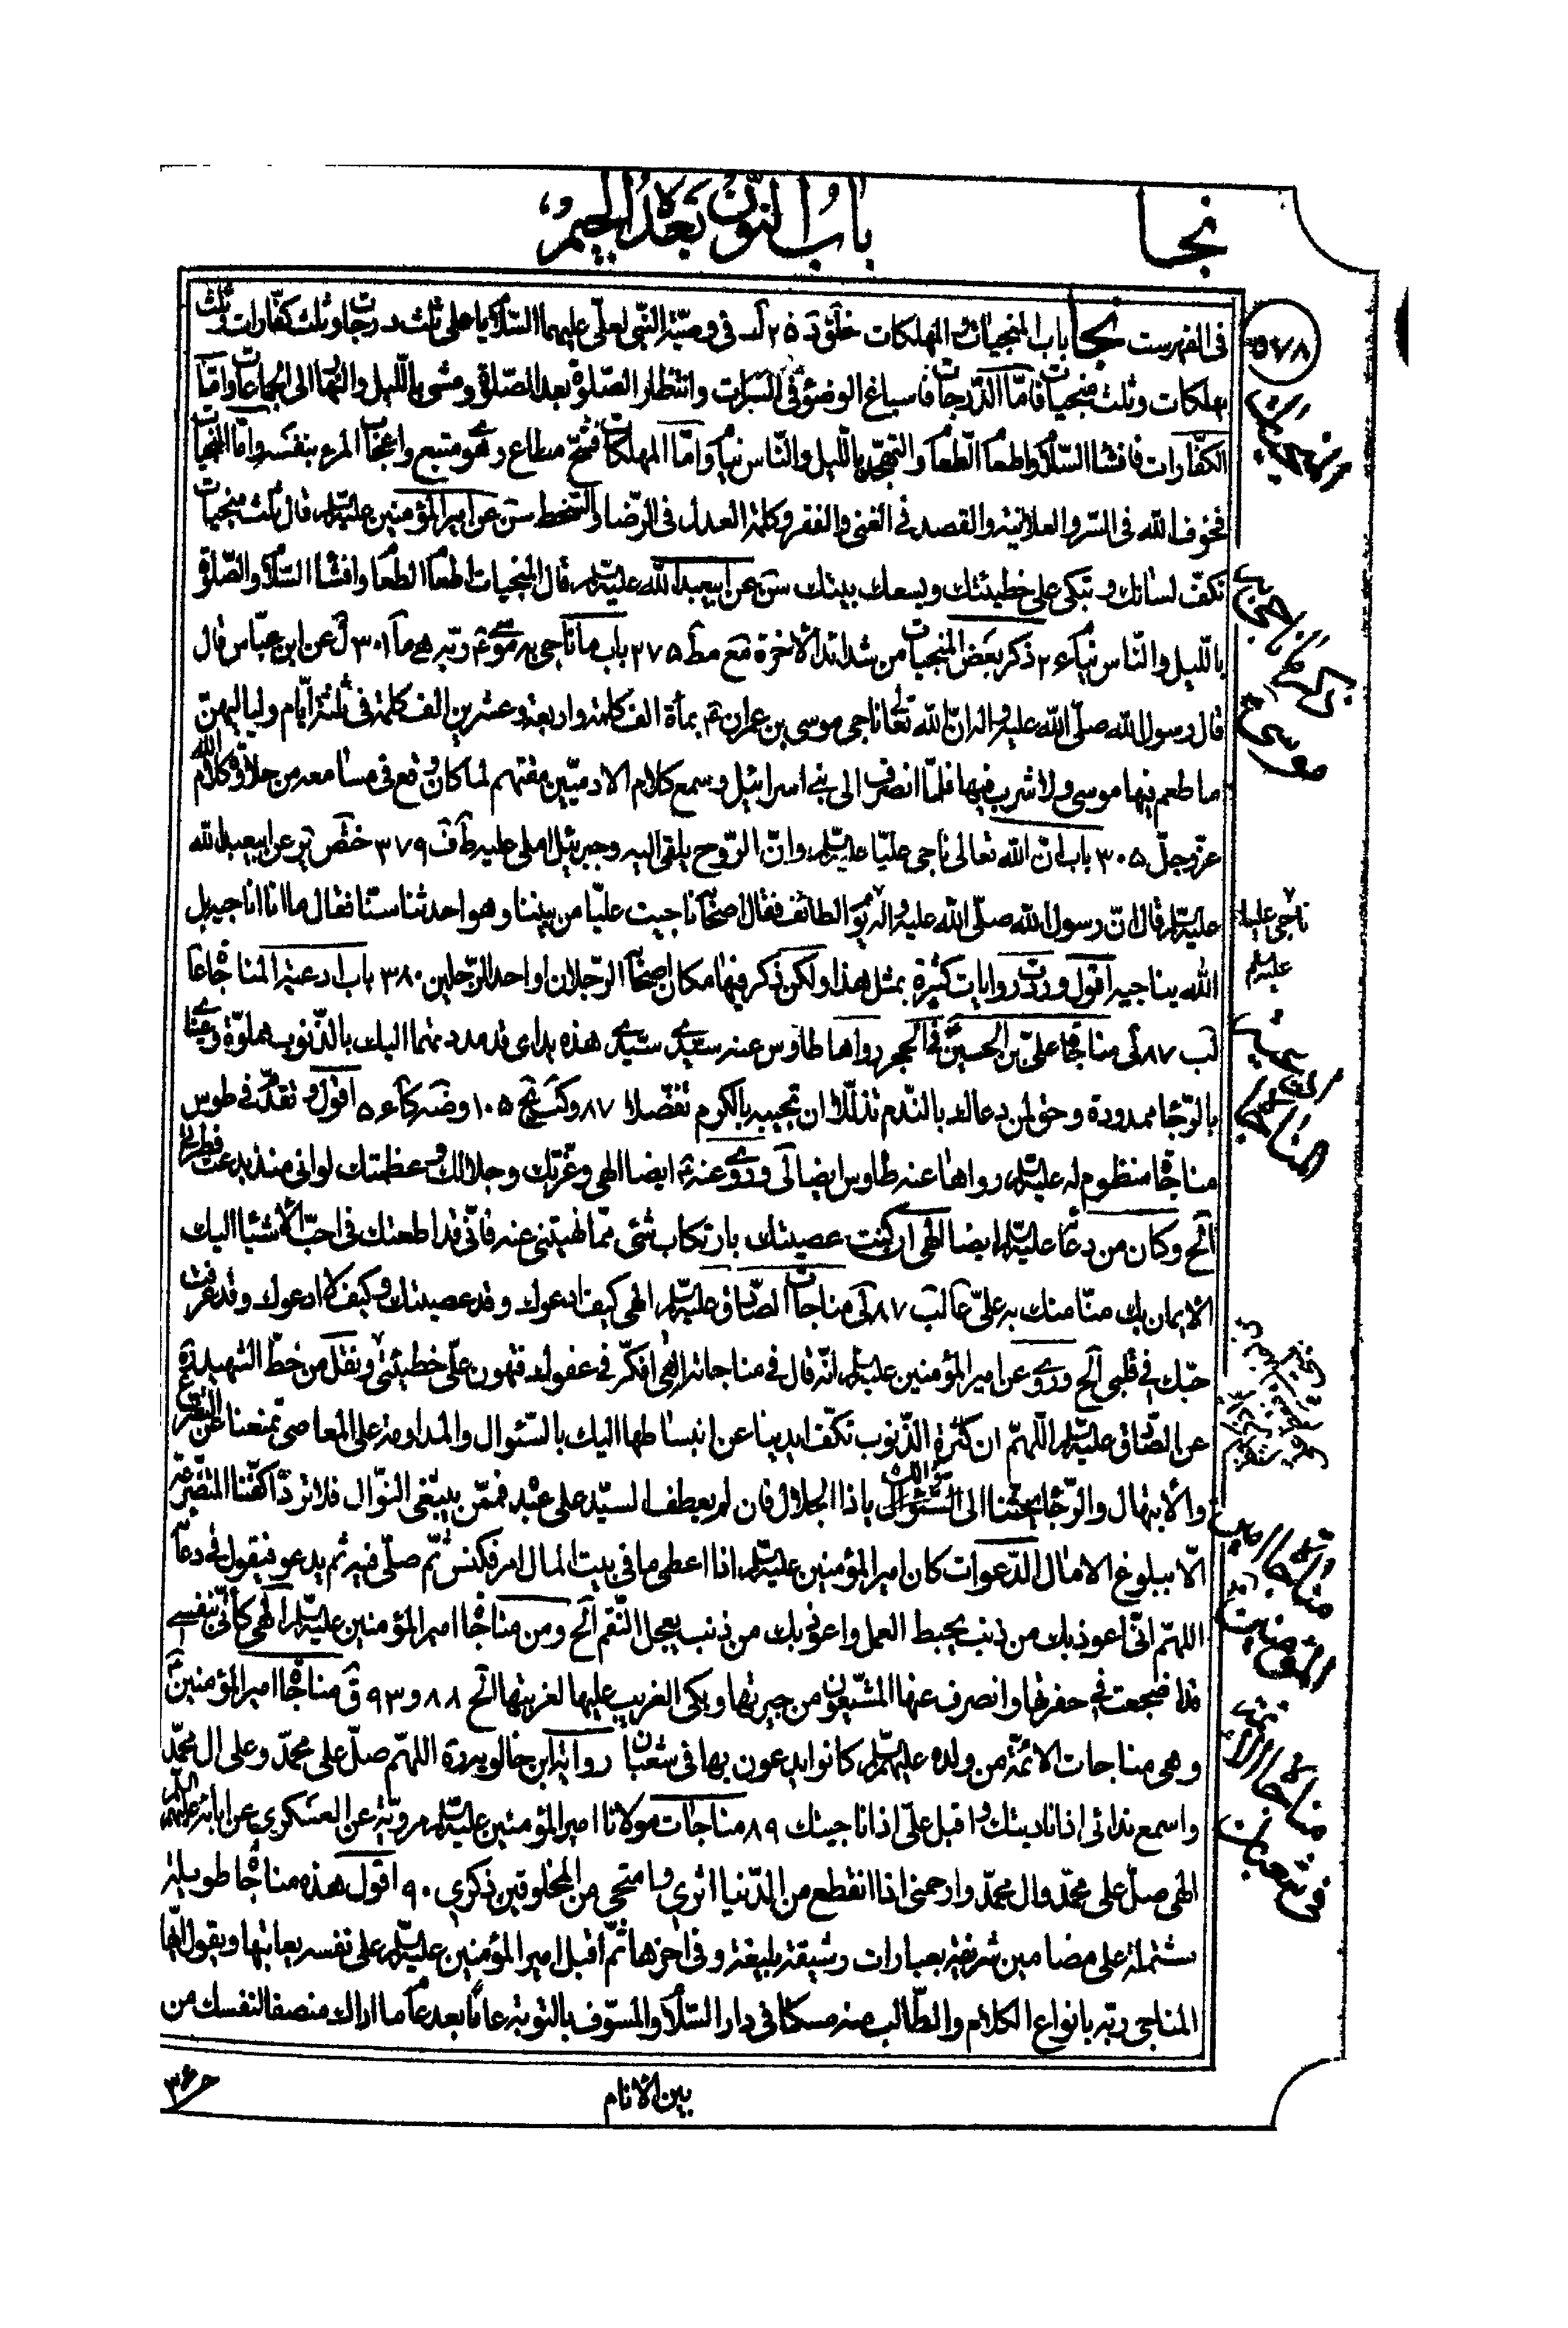 نجا
باب النون بعده الجيم
٥٧٨
في الفهرست نجا باب المنجيات والمهلكات خلق ٢٥ لـ في وصيّة النبي لعلي عليهما السّلام يا علي ثلث درجات وثلث كفّارات وثلث
مهلكات وثلث منجيات فامّا الدّرجات فاسباغ الوضوء في السبرات وانتظار الصّلوة بعد الصّلوة ومشى بالليل والنهار الى الجماعات وامّا
الكفّارات فافشاء السّلام واطعام الطّعام والتهجّد بالليل والنّاس نيام وامّا المهلكات فشحّ مطاع وهوى متبع واعجاب المرء بنفسه وامّا المنجيات
فخوف الله في السّر والعلانية والقصد في الغنى والفقر وكلمة العدل في الرّضا والسّخط سن عن امير المؤمنين عليه السلام قال ثلث منجيات
تكفّ لسانك وتبكى على خطيئتك ويسعك بيتك سن عن ابيعبد الله عليه السلام قال المنجيات اطعام الطّعام وافشاء السّلام والصّلوة
بالليل والنّاس نيام ٢٦ ذكر بعض المنجيات من شدائد الآخرة مع مط ٢٧٥ باب ما ناجى به موسى ع ربّه ما ٣٠١ ل عن ابن عبّاس قال
قال رسول الله صلّى الله عليه واله انّ الله تعالى ناجى موسى بن عمران ع بمأة الف كلمة واربعة وعشرين الف كلمة في ثلثة ايّام ولياليهنّ
ما طعم فيها موسى ولا شرب فيها فلمّا انصرف الى بني اسرائيل وسمع كلام الادميّين مقتهم لما كان وقع في مسامعه من حلاوة كلام الله
عزّ وجلّ ٣٠٥ باب انّ الله تعالى ناجى عليّا عليه السلام وانّ الرّوح يلقى اليه وجبرئيل املى عليه ط ف ٣٧٩ ختص ير عن ابيعبد الله
عليه السلام قال انّ رسول الله صلّى الله عليه واله يوم الطائف فقال اصحابه ناجيت عليّا من بيننا وهو احدثنا سنّا فقال ما انا اناجيه بل
الله يناجيه اقول وردت روايات كثيرة بمثل هذا ولكن ذكر فيها مكان اصحابه الرّجلان او احد الرّجلين ٣٨٠ باب ادعية المناجاة عا
لب ٨٧ لى مناجاة عليّ بن الحسين ع في الحجر رواها طاوس عنه سيّدى سيّدى هذه يداى قد مددتهما اليك بالذّنوب مملوّة وعيناى
بالرّجاء ممدودة وحق لمن دعاك بالندم تذلّلا ان تجيبه بالكرم تفضّلا ٨٧ ١٠٥ ٥٦ اقول وتقدّم في طوس
مناجاة منظوم له عليه السلام رواها عنه طاوس ايضا لى وروى عنه ع ايضا الهي وعزّتك وجلالك وعظمتك لو انى منذ بدعت فطرتي
الخ وكان من دعائه عليه السلام ايضا الهي ان كنت عصيتك بارتكاب شئ ممّا نهيتني عنه فانّى قد اطعتك في احبّ الاشياء اليك
الايمان بك منّا منك به عليّ عا لب ٨٧ لى مناجات الصّادق عليه السلام الهي كيف ادعوك وقد عصيتك وكيف لا ادعوك وقد عرفت
حبّك في قلبى الخ وروى عن امير المؤمنين عليه السلام انّه قال في مناجاته الهي افكّر في عفوك فتهون عليّ خطيئتي ونقل من خطّ الشهيد ره
عن الصّادق عليه السلام اللّهمّ ان كثرة الذّنوب تكفّ ايدينا عن انبساطها اليك بالسّئوال والمداومة على المعاصى تمنعنا عن التضرّع
والابتهال والرّجاء يحثّنا الى سؤالك يا ذا الجلال فان لم يعطف السيّد على عبده فممّن يبتغى النوال فلا تردّ اكفّنا المتضرّعة
الاّ ببلوغ الامال الدّعوات كان امير المؤمنين عليه السلام اذا اعطى ما في بيت المال امر فكنس ثمّ صلّى فيه ثم يدعو فيقول في دعائه
اللهمّ انّى اعوذ بك من ذنب يحبط العمل واعوذ بك من ذنب يعجل النّقم الخ ومن مناجاة امير المؤمنين عليه السلام الهي كأنّى بنفسى
قد اضجعت في حفرتها وانصرف عنها المشيّعون من جيرتها وبكى الغريب عليها لغربتها الخ ٨٨ و٩٣ ق مناجاة امير المؤمنين ع
وهي مناجات الائمّة من ولده عليهم السلام كانوا يدعون بها في شعبان رواية ابن خالويه ره اللهمّ صلّ على محمّد وعلى ال محمّد
واسمع ندائى اذا ناديتك واقبل عليّ اذا ناجيتك ٨٩ مناجات مولانا امير المؤمنين عليه السلام مرويّة عن العسكري عن ابائه عليهم السلام
الهي صلّ على محمّد وال محمّد وارحمني اذا انقطع من الدّنيا اثري وامتحى من المخلوقين ذكري ٩٠ اقول هذه مناجاة طويلة
مشتملة على مضامين شريفة بعبارات رشيقة بليغة وفي اخرها ثمّ اقبل امير المؤمنين عليه السلام على نفسه يعاتبها ويقول ايّها
المناجى ربّه بانواع الكلام والطّالب منه مسكنا في دار السّلام والمسوّف بالتوبة عاما بعد عام ما اراك منصفا لنفسك من
المنجيات
ما ناجى به
موسى ع
ناجى عليا
عليه السلام
ادعية
المناجاة
مناجاة امير
المؤمنين
مناجاة الائمة
في شعبان
بين الانام